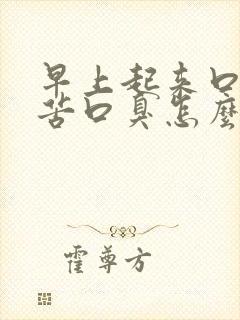 早上起来口
苦口臭怎麽
霍尊方